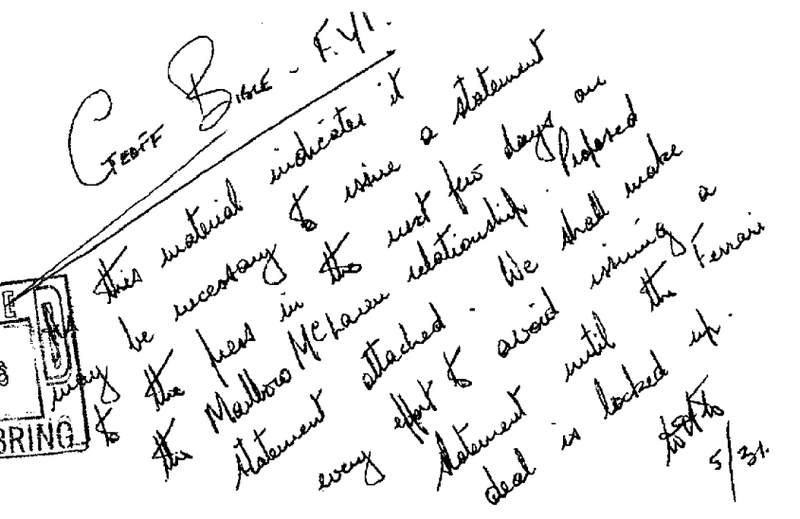 Geoff Bible - F.Y.I.
this material indicates it
may be necessary to issue a statement
to the press in the next few days on
the Marlboro McLaren relationship. Proposed
statement attached. We shall make
every effort to avoid issuing a
statement until the Ferrari
deal is locked up.
5/31.
E
BRING